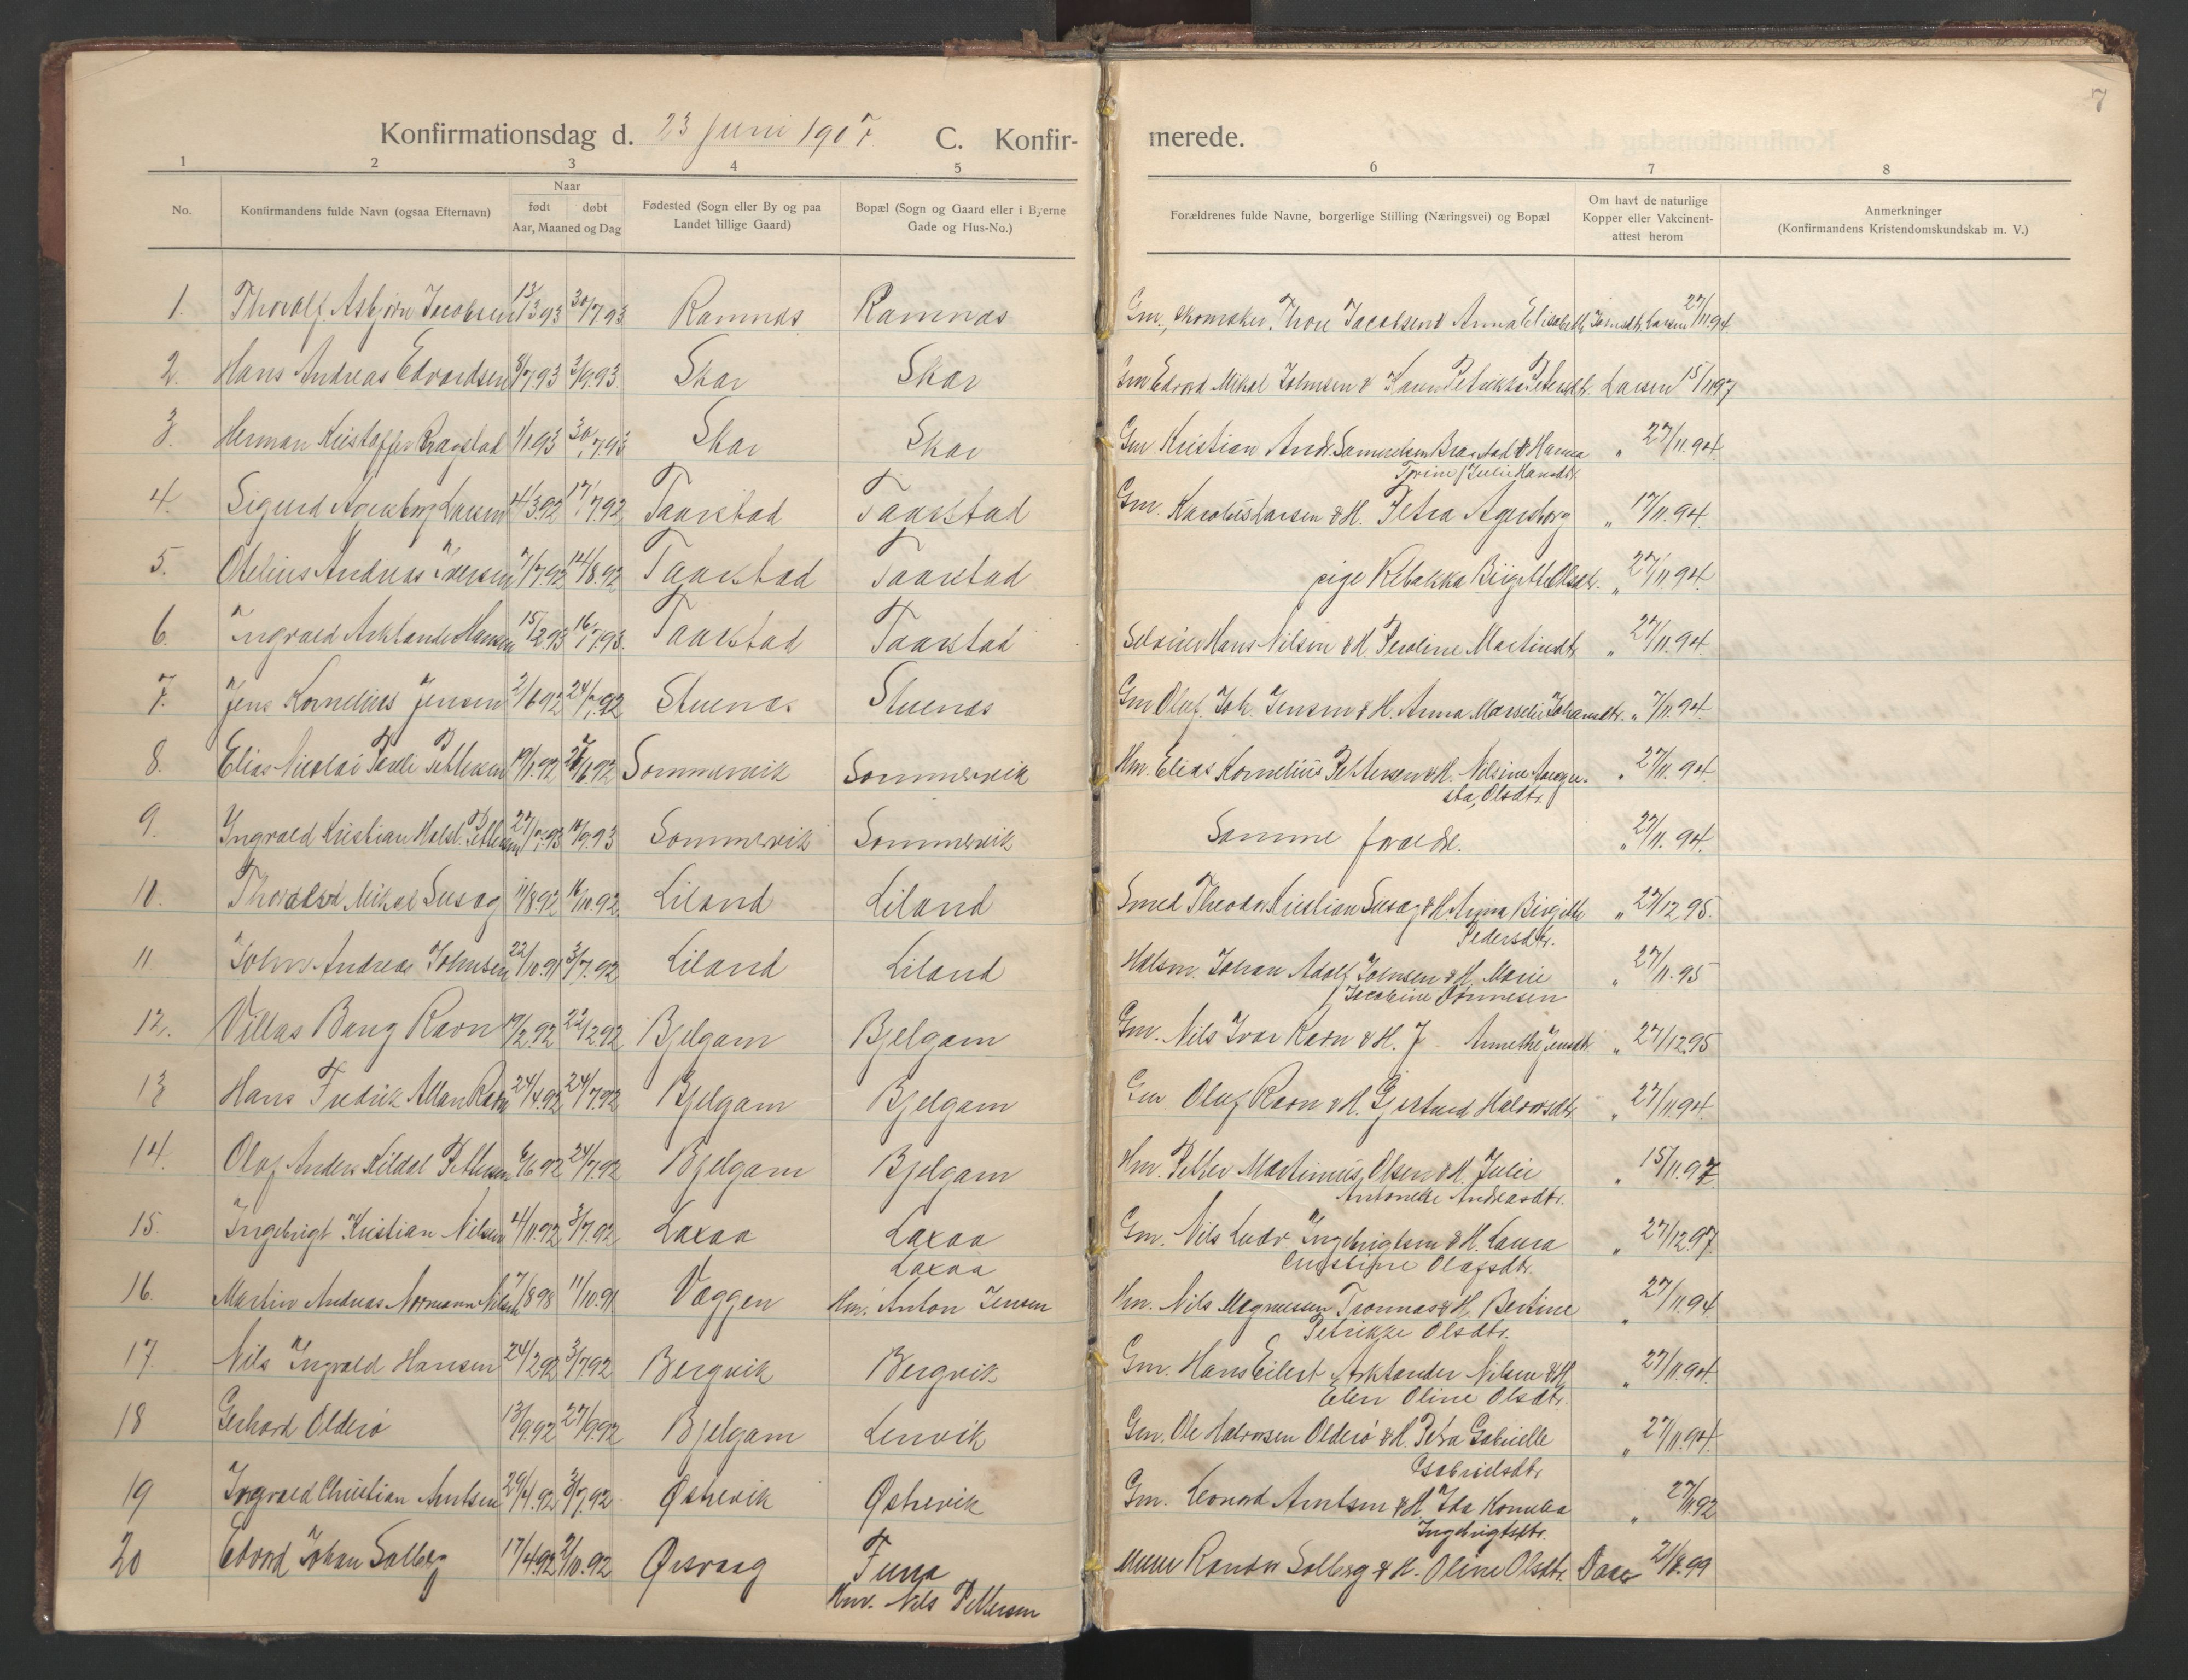 7
Konfirmationsdag d. 23 Juni 1907. C. Konfir- merede.
1 2 3 4 5 6 7 8
No. Konfirmandens fulde Navn (ogsaa Efternavn) Naar født døbt Aar, Maaned og Dag Fødested (Sogn eller By og paa Landet tillige Gaard) Bopæl (Sogn og Gaard eller i Byerne Gade og Hus-No.) Forældrenes fulde Navne, borgerlige Stilling (Næringsvei) og Bopæl Om havt de naturlige Kopper eller Vakcinent-attest herom Anmerkninger (Konfirmandens Kristendomskundskab m. V.)
1. Thoralf Asbjørn Jacobsen 13/3 93 30/7 93 Ramnas Ramnas Gm., skomaker Thore Jacobsen & Anna Elisabeth Larsen 27/11.94
2. Hans Andreas Edvardsen 8/7.93 3/9.93 Skar Skar Gm Edvard Mikal Johnsen & Karen Petrikka Petersdtr. Larsen 15/11 97
3. Herman Kristoffer Bragstad 1/1 93 30/7 93 Skar Skar Gm. Kristian Andr. Samuelsen Bragstad & Hanna " 27/11.94
Julie Hansdtr.
4. Sigurd Agersborg Larsen 4/3.92 17/7.92 Taarstad Taarstad Gm. Karolius Larsen & H. Petra Agersborg " 17/11.94.
5. Otelius Andreas Iversen 7/7.92 14/8.92 Taarstad Taarstad pige Rebakka Birgitte Olsdtr. " 27/11 94
6. Ingvald Arktander Hansen 15/2.93 16/7 93. Taarstad Taarstad Selveier Hans Nilsen & H. Peroline Martinsdtr " 27/11.94.
7. Jens Kornelius Jensen 2/6 92 24/7.92 Stuenes Stuenes Gm Oluf Joh. Jensen & H. Anna Marselie Johansdtr. " 7/11.94.
8. Elias Nicolai Pareli Pettersen 19/1.92 26/6 92 Sommervik Sommervik Hm. Elias Kornelius Pettersen & H. Nilsine Augu- " 27/11.94.
sta, Olsdtr.
9. Ingvald Kristian Holst Pettersen 27/7.93 10/9.93 Sommervik Sommervik Samme foræld. " 27/11. 94.
10. Thoralv Mikal Susag 11/8 92 16/10.92. Liland Liland Smed Theodor Kristian Susag & H. Anna Birgitte " 27/12 95.
Pedersdtr.
11 Johns Andreas Johnsen 22/10.91 3/7.92 Liland Liland Halsm. Johan Adolf Johnsen & H. Marie " 27/11.95
Jacobine Tønnesen
12. Villas Bang Ravn 17/2.92 22/2 92 Bjelgam Bjelgam Gm. Nils Ivar Ravn & H. J. Annethe Jensdtr. " 27/12 95
13 Hans Fredrik Allan Ravn 24/4.92 24/7.92 Bjelgam Bjelgam Gm Olug Ravn & H. Gjertrud Halvorsdtr " 27/11.94
14. Olaf Anders Kildal Pettersen 6/6 92 24/7.92 Bjelgam Bjelgam Hm. Petter Martinius Olsen & H. Julie " 15/11.97
Antonette Andreasdtr.
15. Ingebrigt Kristian Nilsen 4/11.92 3/7.92 Laxaa Laxaa Gm. Nils Ludv Ingebrigtsen & H. Laura " 27/12 97
Christine Olafsdtr.
16. Martin Andreas Normann Nilsen 7/8 98 11/10.91 Vaggen Laxaa Hm. Anton Jensen Hm. Nils Magnussen Tronnas & H. Bertine " 27/11.94
Petrikke Olsdtr.
17. Nils Ingvald Hansen 24/2 92 3/7.92 Bergvik Bergvik Gm. Hans Eilert Arktander Nilsen & H " 27/11.94
Elen Oline Olsdtr.
18 Gerhard Olderø 13/9.92 27/9.92 Bjelgam Lenvik Gm. Ole Halvorsen Olderø & H. Petra Gabrielle " 27/11.94.
Gabrielsdtr
19 Ingvald Christian Arntsen 29/4.92 3/7.92 Østervik Østervik Gm. Leonard Arntsen & H Ida Kornelia " 27/11 92
Ingebrigtsdtr.
20 Edvard Johan Solberg 17/4.92 2/10.92 Ørsvaag Funa Hm. Nils Pettersen Murer Rander Solberg & H. Oline Olsdtr. Daae 21/8.99